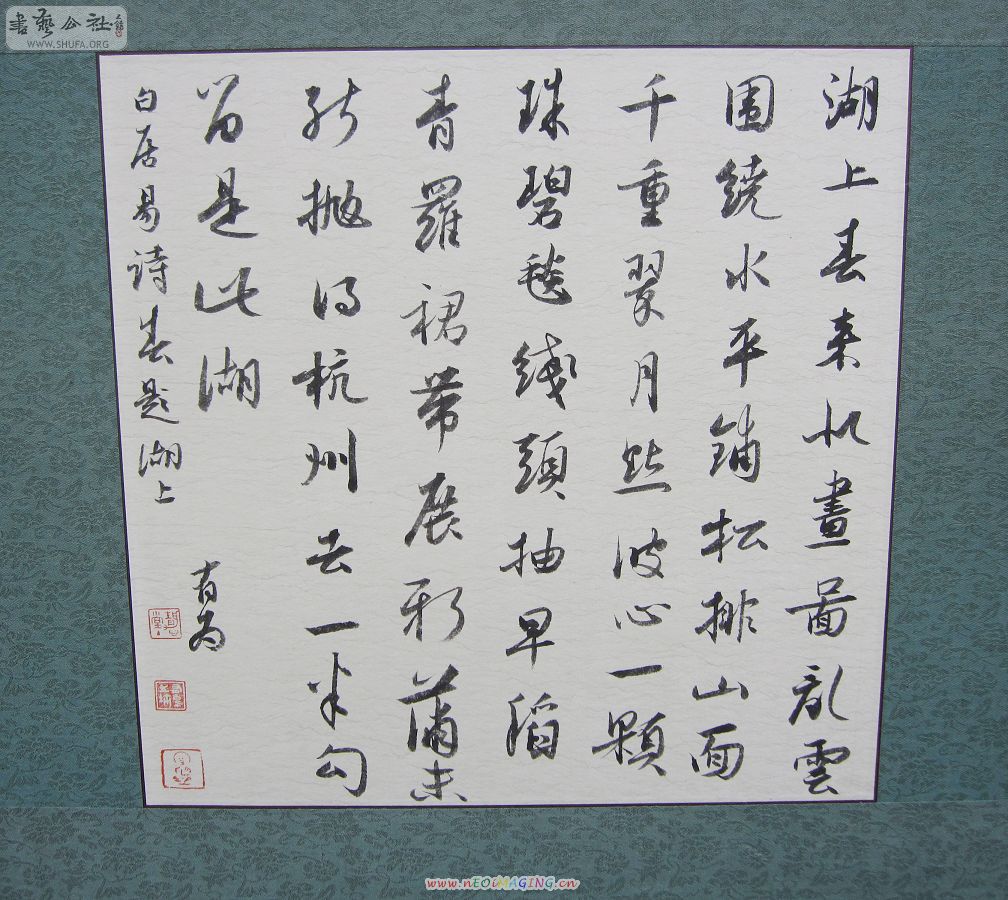 書藝公社
WWW.SHUFA.ORG
湖上春来似畫啚乱雲
围繞水平鋪松排山面
千重翠月點波心一顆
珠碧毯綫頭抽早稻
青羅裙帶展新蒲未
能抛得杭州去一半勾
留是此湖
白居易詩春題湖上
有为
www.nEOiMAGiNG.cn